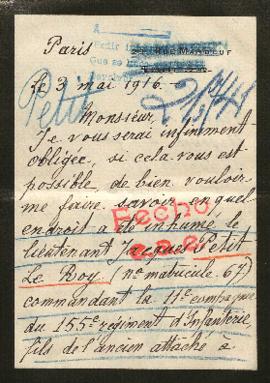 Paris
Le 3 mai 1916.
Petit
Monsieur,
Je vous serai infiniment
obligée, si cela vous est
possible, de bien vouloir
me faire savoir en quel
endroit a été inhumé le
Fecho
lieutenant Jacques Petit
Le Roy (no matricule 67)
commandant la 11e compagnie
du 155e régiment d'Infanterie,
fils de l'ancien attaché à